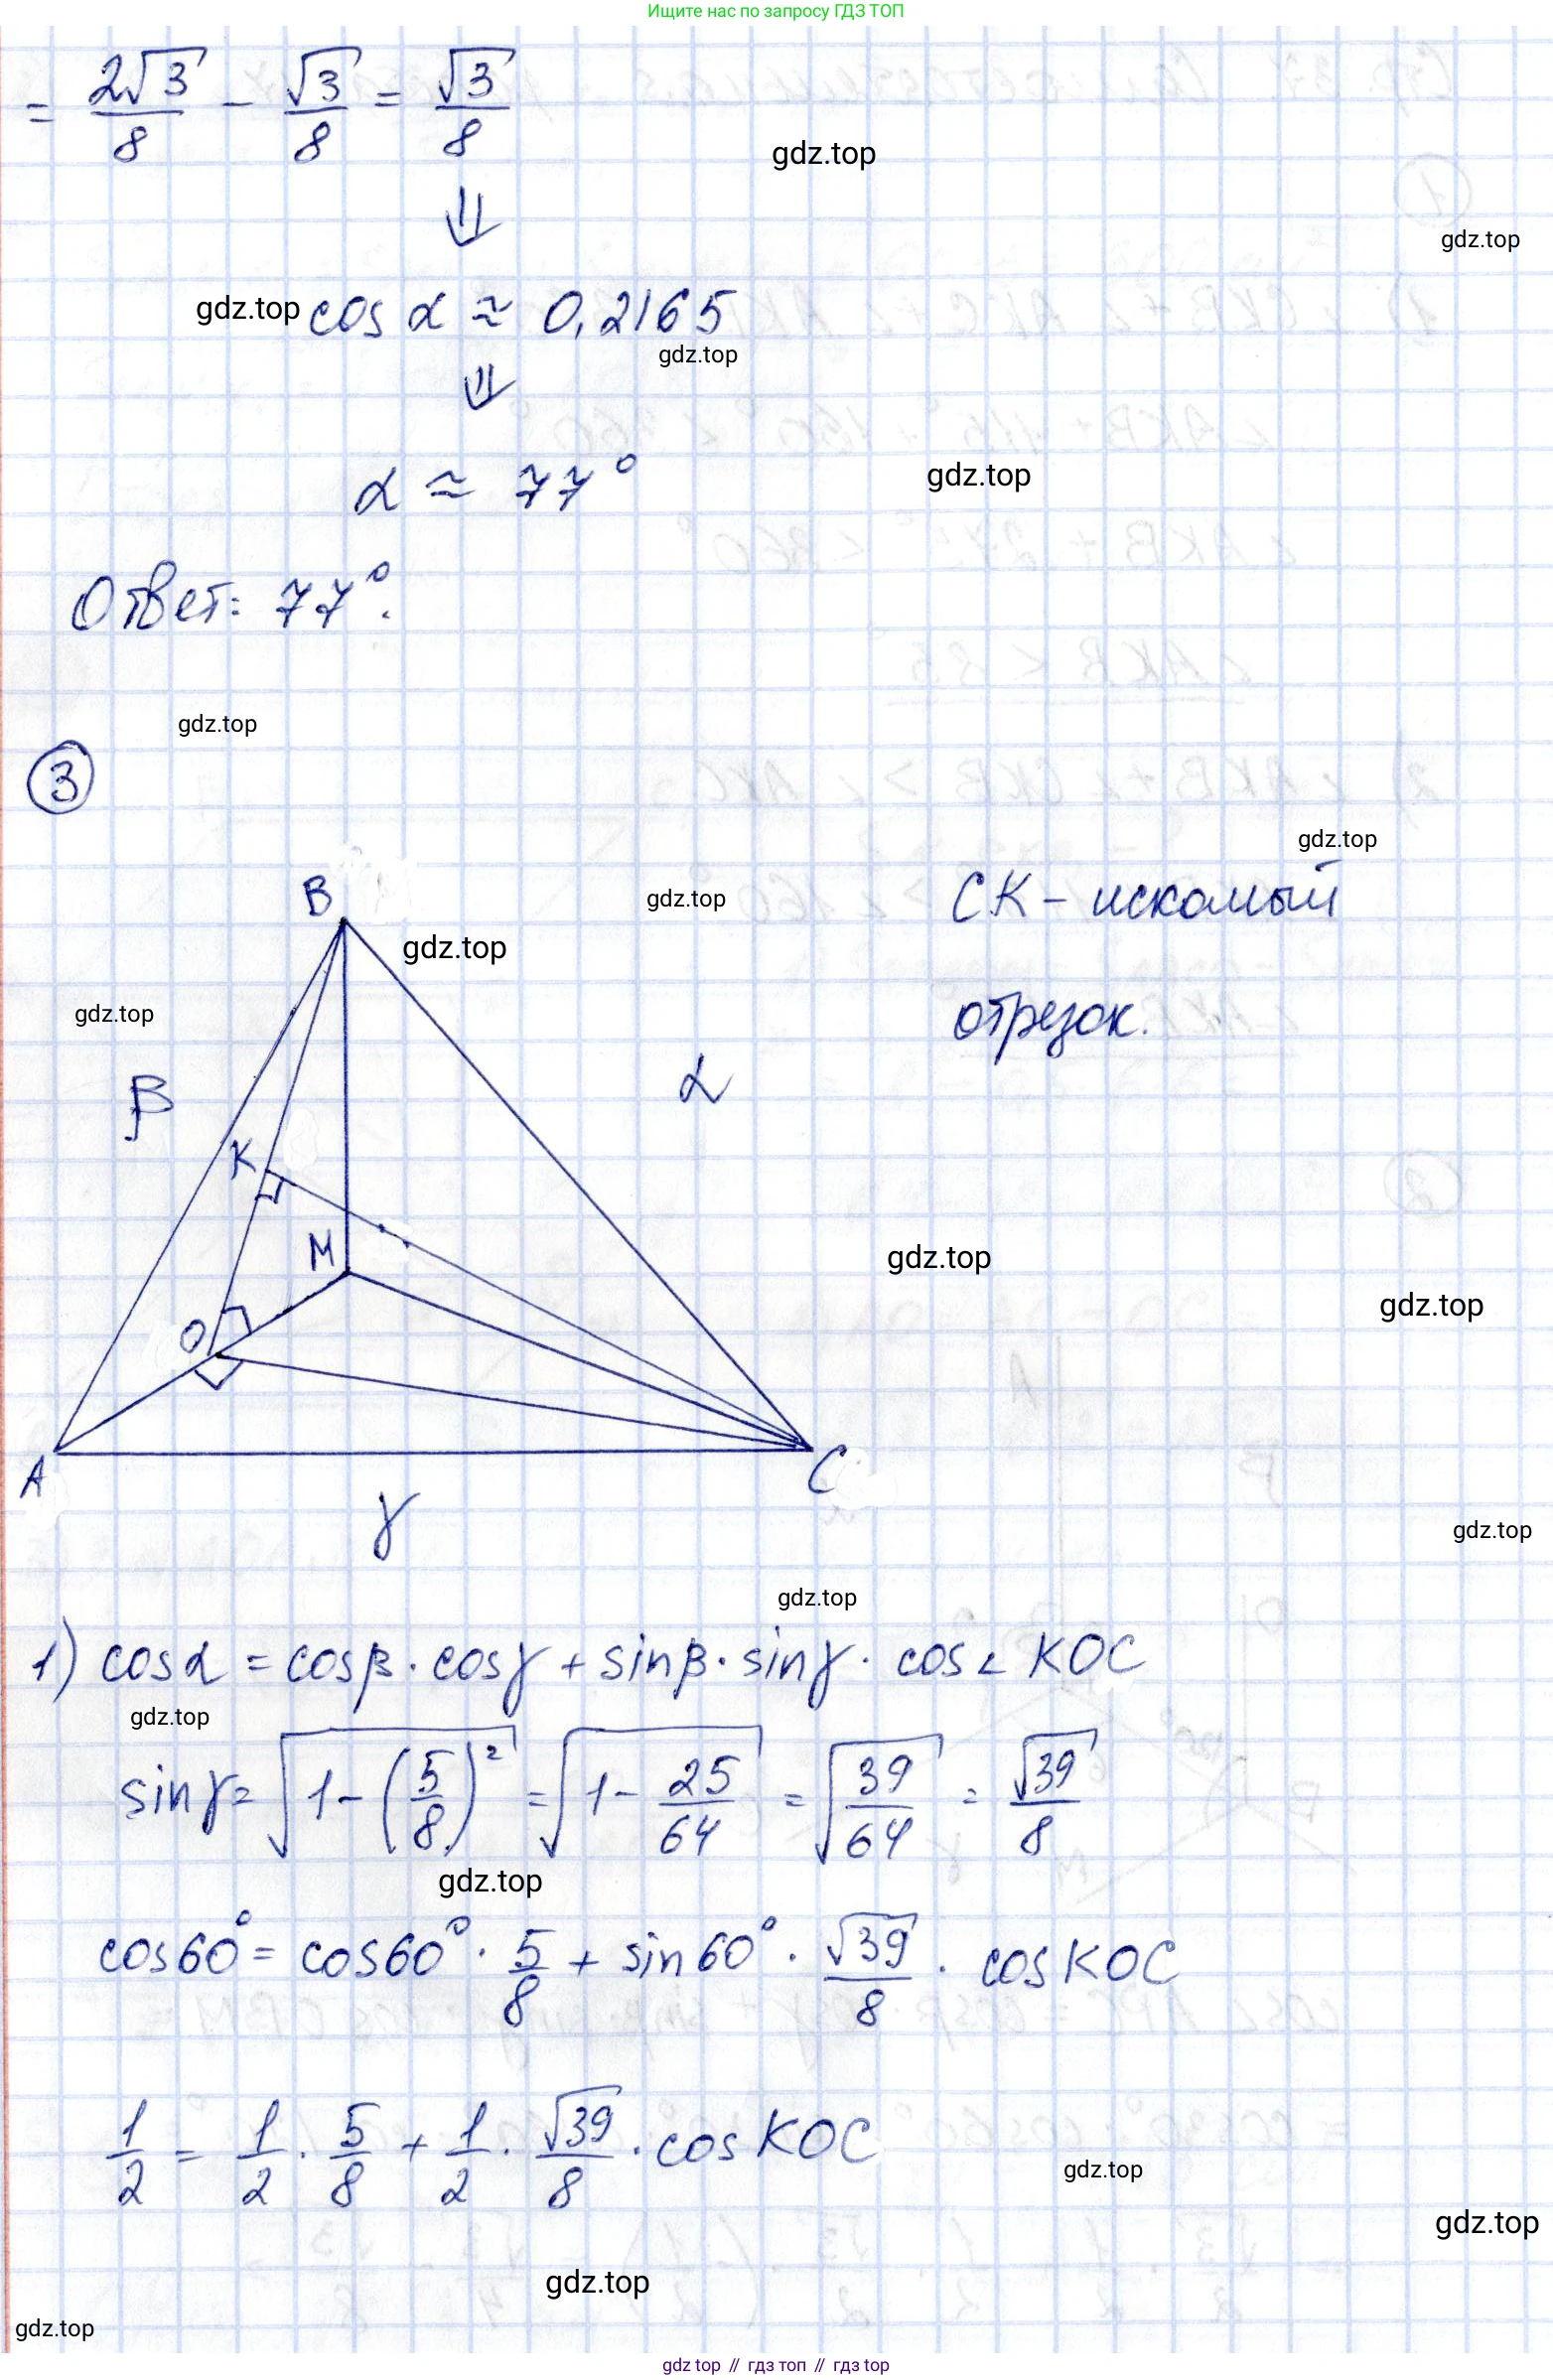 Ищите нас по запросу ГДЗ ТОП
= 2√3/8 − √3/8 = √3/8
gdz.top
⇓
gdz.top
gdz.top
cos α ≈ 0,2165
gdz.top
⇓
α ≈ 77°
gdz.top
Ответ: 77°.
gdz.top
3
gdz.top
B
gdz.top
CK – искомый
gdz.top
gdz.top
отрезок.
β
α
K
M
gdz.top
gdz.top
O
A
C
γ
gdz.top
gdz.top
1) cos α = cos β · cos γ + sin β · sin γ · cos ∠ KOC
gdz.top
sin γ = √(1 − (5/8)²) = √(1 − 25/64) = √(39/64) = √39/8
gdz.top
cos 60° = cos 60° · 5/8 + sin 60° · √39/8 · cos KOC
1/2 = 1/2 · 5/8 + 1/2 · √39/8 · cos KOC
gdz.top
gdz.top
gdz.top
gdz.top
gdz top // гдз топ // гдз top